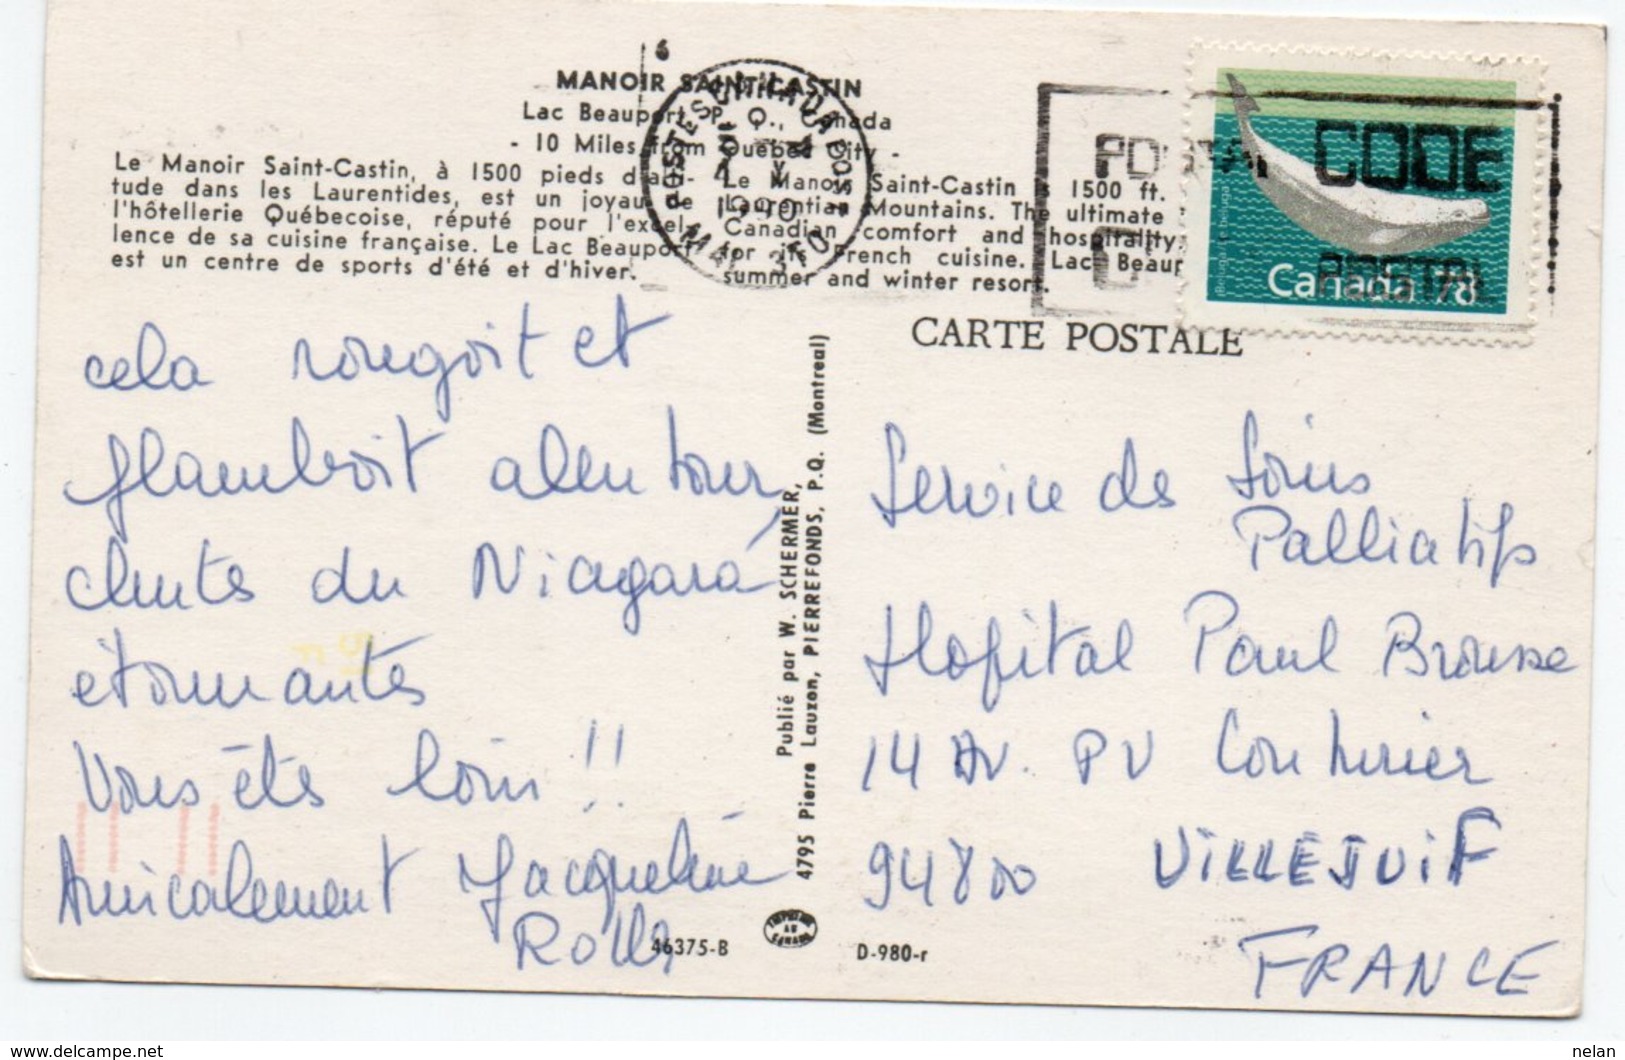 MANOIR SAINT-CASTIN
Lac Beauport, P. Q., Canada
- 10 Miles from Quebec City -
Le Manoir Saint-Castin, à 1500 pieds d'al-
tude dans les Laurentides, est un joyau de
l'hôtellerie Québecoise, réputé pour l'excel-
lence de sa cuisine française. Le Lac Beauport
est un centre de sports d'été et d'hiver.
Le Manoir Saint-Castin is 1500 ft.
Laurentian Mountains. The ultimate
Canadian comfort and hospitality,
for its French cuisine. Lac Beaup
summer and winter resort.
POSTES
1990
POSTAL CODE
POSTAL
Canada 78
CARTE POSTALE
cela rougoit et
flamboit alentour
chutes du Niagara
étonnantes
Vous êtes loin !!
Amicalement Jacqueline
Publié par W. SCHERMER,
4795 Pierre Lauzon, PIERREFONDS, P.Q. (Montreal)
Service de Soins
Palliatifs
Hopital Paul Brousse
14 Av. PV Couturier
94800 VILLEJUIF
FRANCE
46375-B
IMPRIMÉ
AU
CANADA
D-980-r
https://www.delcampe.net
nelan